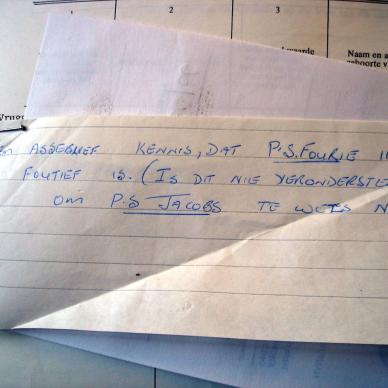 1 2 3
waarde
Naam en a
geboorte v
ASSEBLIEF KENNIS, DAT P.S. FOURIE
FOUTIEF IS. (IS DIT NIE VERONDERSTE
OM P.S JACOBS TE WEES N